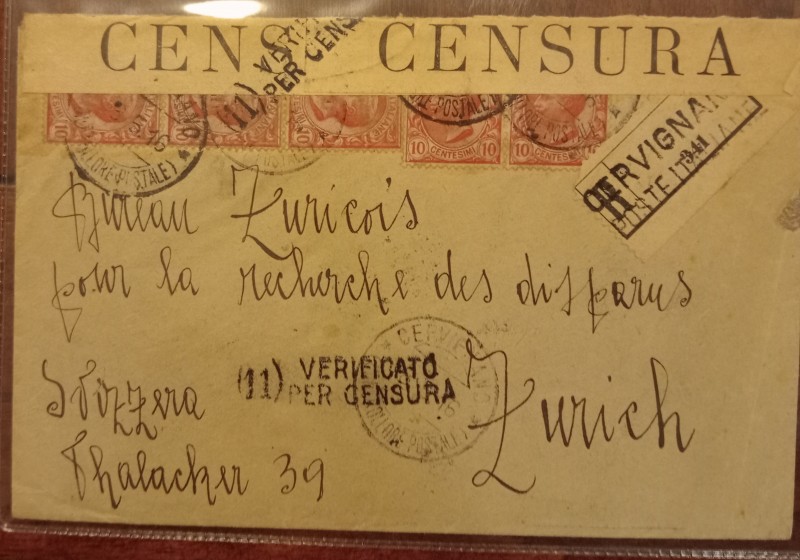 CENS CENSURA
(11) PER CENS
10 CENTESIMI 10
10 CENTESIMI
CERVIGNAN
341
POSTE ITALIANE
Bureau Zuricois
pour la recherche des disparus
(11) VERIFICATO
PER CENSURA
CERVIGNANO
Svizzera
Zurich
Thalacker 39